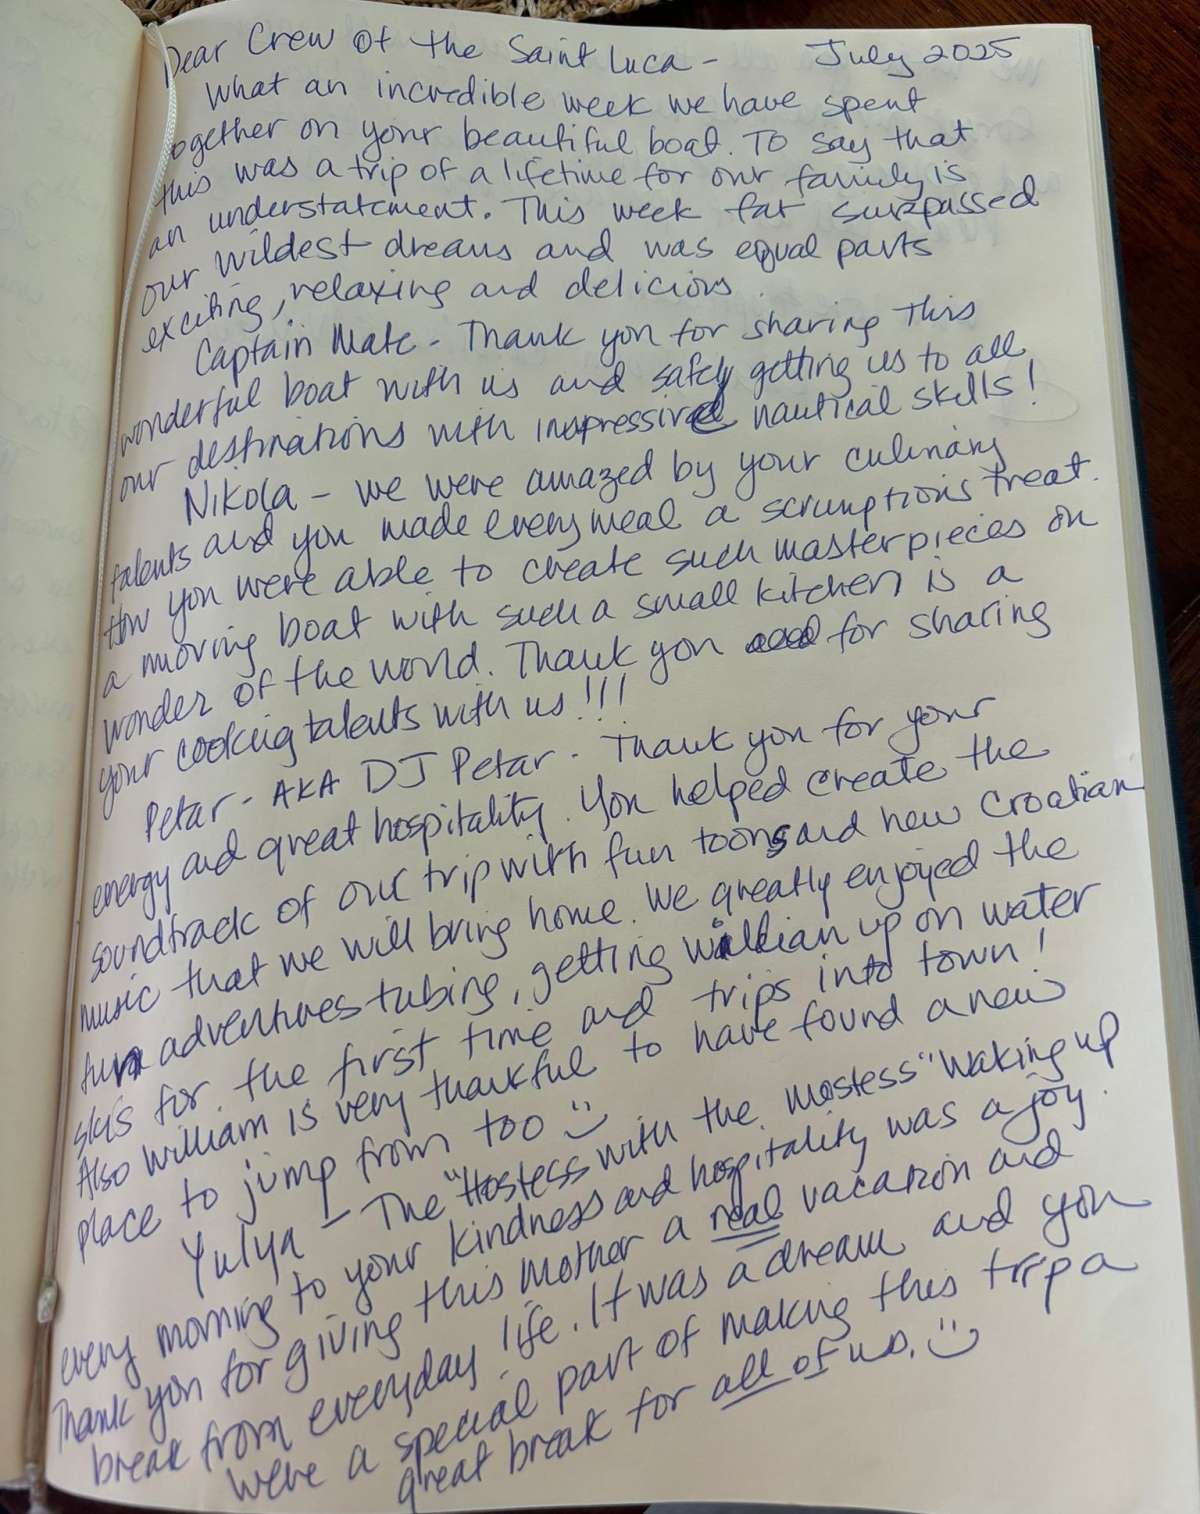 Dear Crew of the Saint Luca - July 2025
What an incredible week we have spent
together on your beautiful boat. To say that
this was a trip of a lifetime for our family is
an understatement. This week far surpassed
our wildest dreams and was equal parts
exciting, relaxing and delicious.
Captain Mate - Thank you for sharing this
wonderful boat with us and safely getting us to all
our destinations with impressive nautical skills!
Nikola - we were amazed by your culinary
talents and you made every meal a scrumptious treat.
How you were able to create such masterpieces on
a moving boat with such a small kitchen is a
wonder of the world. Thank you for sharing
your cooking talents with us!!!
Petar - AKA DJ Petar - Thank you for your
energy and great hospitality. You helped create the
soundtrack of our trip with fun toons and new Croatian
music that we will bring home. We greatly enjoyed the
fun adventures tubing, getting William up on water
skis for the first time and trips into town!
Also William is very thankful to have found a new
place to jump from too :)
Yulya - The "Hostess with the mostess" Waking up
every morning to your kindness and hospitality was a joy.
Thank you for giving this mother a real vacation and
break from everyday life. It was a dream and you
were a special part of making this trip a
great break for all of us. :)